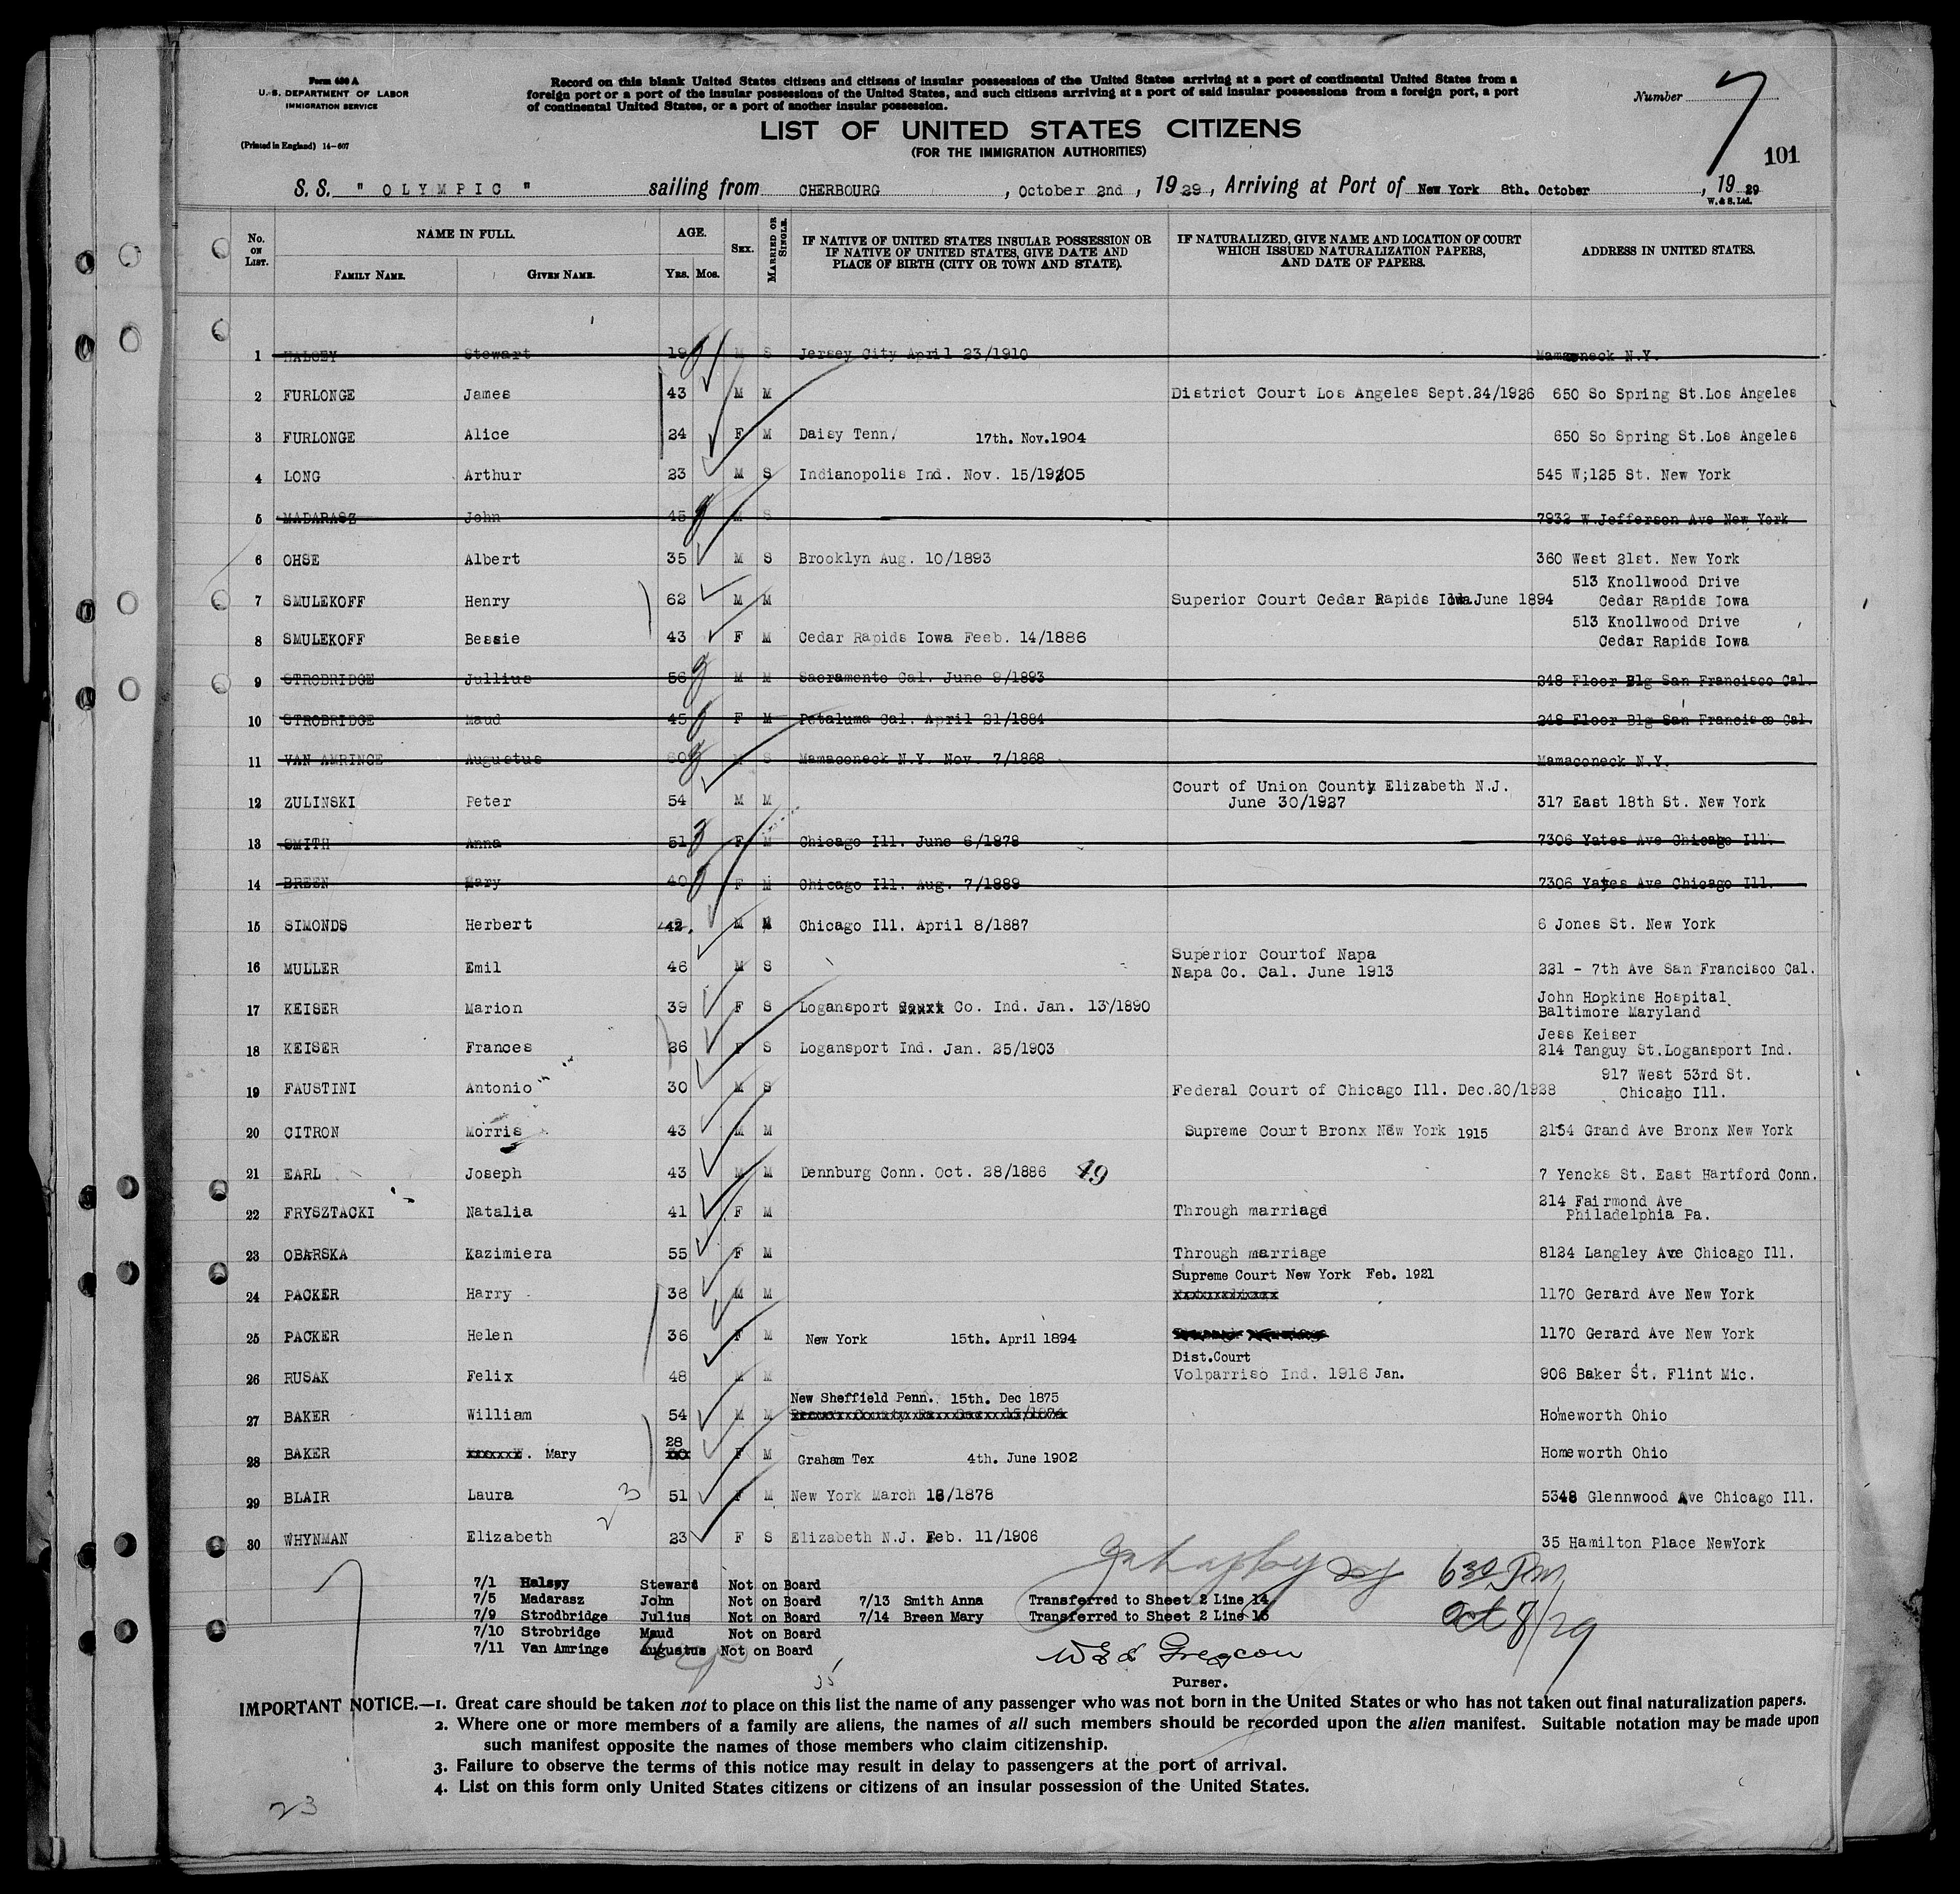 Form 630 A
U. S. DEPARTMENT OF LABOR
IMMIGRATION SERVICE
(Printed in England) 14-607
Record on this blank United States citizens and citizens of insular possessions of the United States arriving at a port of continental United States from a
foreign port or a port of the insular possessions of the United States, and such citizens arriving at a port of said insular possessions from a foreign port, a port
of continental United States, or a port of another insular possession.
Number 7
LIST OF UNITED STATES CITIZENS
(FOR THE IMMIGRATION AUTHORITIES)
101
S. S. " OLYMPIC " sailing from CHERBOURG , October 2nd , 19 29 , Arriving at Port of New York 8th. October , 19 29
W. & S. Ltd.
No. ON LIST. NAME IN FULL. AGE. SEX. MARRIED OR SINGLE. IF NATIVE OF UNITED STATES INSULAR POSSESSION OR IF NATIVE OF UNITED STATES, GIVE DATE AND PLACE OF BIRTH (CITY OR TOWN AND STATE). IF NATURALIZED, GIVE NAME AND LOCATION OF COURT WHICH ISSUED NATURALIZATION PAPERS, AND DATE OF PAPERS. ADDRESS IN UNITED STATES.
FAMILY NAME. GIVEN NAME. YRS. MOS.
1 HALSEY Stewart 19 M S Jersey City April 23/1910 Mamaroneck N.Y.
2 FURLONGE James 43 M M District Court Los Angeles Sept.24/1926 650 So Spring St.Los Angeles
3 FURLONGE Alice 24 F M Daisy Tenn. 17th. Nov.1904 650 So Spring St.Los Angeles
4 LONG Arthur 23 M S Indianopolis Ind. Nov. 15/19205 545 W;125 St. New York
5 MADARASZ John 45 M S 7932 W.Jefferson Ave New York
6 OHSE Albert 35 M S Brooklyn Aug. 10/1893 360 West 21st. New York
513 Knollwood Drive
7 SMULEKOFF Henry 62 M M Superior Court Cedar Rapids Iowa June 1894 Cedar Rapids Iowa
513 Knollwood Drive
8 SMULEKOFF Bessie 43 F M Cedar Rapids Iowa Feeb. 14/1886 Cedar Rapids Iowa
9 STROBRIDGE Jullius 56 M M Sacramento Cal. June 9/1893 248 Floor Blg San Francisco Cal.
10 STROBRIDGE Maud 45 F M Petaluma Cal. April 21/1884 248 Floor Blg San Francisco Cal.
11 VAN AMRINGE Augustus 60 M S Mamaconeck N.Y. Nov. 7/1868 Mamaconeck N.Y.
Court of Union County Elizabeth N.J.
12 ZULINSKI Peter 54 M M June 30/1927 317 East 18th St. New York
13 SMITH Anna 51 F M Chicago Ill. June 6/1878 7306 Yates Ave Chicago Ill.
14 BREEN Mary 40 F M Chicago Ill. Aug. 7/1889 7306 Yates Ave Chicago Ill.
15 SIMONDS Herbert 42 M M Chicago Ill. April 8/1887 6 Jones St. New York
Superior Courtof Napa
16 MULLER Emil 46 M S Napa Co. Cal. June 1913 221 - 7th Ave San Francisco Cal.
John Hopkins Hospital
17 KEISER Marion 39 F S Logansport Co. Ind. Jan. 13/1890 Baltimore Maryland
Jess Keiser
18 KEISER Frances 26 F S Logansport Ind. Jan. 25/1903 214 Tanguy St.Logansport Ind.
917 West 53rd St.
19 FAUSTINI Antonio 30 M S Federal Court of Chicago Ill. Dec.20/1928 Chicago Ill.
20 CITRON Morris 43 M M Supreme Court Bronx New York 1915 2154 Grand Ave Bronx New York
21 EARL Joseph 43 M M Dennburg Conn. Oct. 28/1886 49 7 Yencks St. East Hartford Conn.
214 Fairmond Ave
22 FRYSZTACKI Natalia 41 F M Through marriage Philadelphia Pa.
23 OBARSKA Kazimiera 55 F M Through marriage 8124 Langley Ave Chicago Ill.
Supreme Court New York Feb. 1921
24 PACKER Harry 38 M M 1170 Gerard Ave New York
25 PACKER Helen 36 F M New York 15th. April 1894 1170 Gerard Ave New York
Dist.Court
26 RUSAK Felix 48 M M Volparriso Ind. 1916 Jan. 906 Baker St. Flint Mic.
New Sheffield Penn. 15th. Dec 1875
27 BAKER William 54 M M Homeworth Ohio
28
28 BAKER Mary F M Graham Tex 4th. June 1902 Homeworth Ohio
29 BLAIR Laura 23 51 F M New York March 18/1878 5348 Glennwood Ave Chicago Ill.
30 WHYNMAN Elizabeth 23 F S Elizabeth N.J. Feb. 11/1906 35 Hamilton Place NewYork
630 Pm
7/1 Halsey Steward Not on Board
7/5 Madarasz John Not on Board 7/13 Smith Anna Transferred to Sheet 2 Line 14
Oct 8/29
7/9 Strodbridge Julius Not on Board 7/14 Breen Mary Transferred to Sheet 2 Line 15
7/10 Strobridge Maud Not on Board
7/11 Van Amringe Augustus Not on Board
35
Purser.
IMPORTANT NOTICE.—1. Great care should be taken not to place on this list the name of any passenger who was not born in the United States or who has not taken out final naturalization papers.
2. Where one or more members of a family are aliens, the names of all such members should be recorded upon the alien manifest. Suitable notation may be made upon
such manifest opposite the names of those members who claim citizenship.
3. Failure to observe the terms of this notice may result in delay to passengers at the port of arrival.
4. List on this form only United States citizens or citizens of an insular possession of the United States.
23